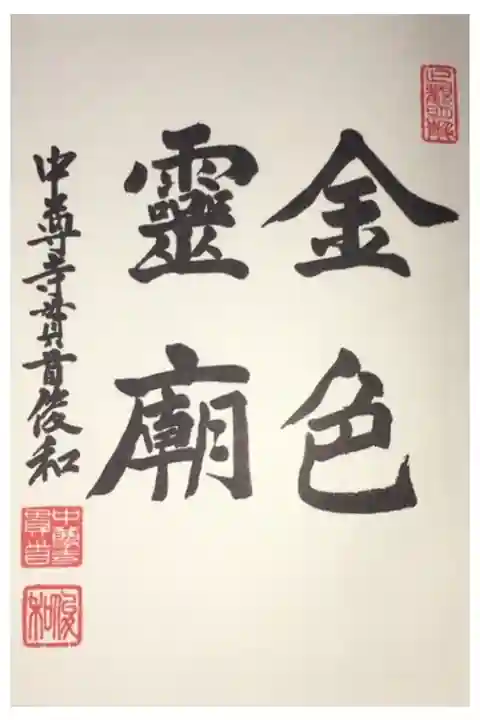 金色
靈廟
中尊寺貫首俊和
中尊寺貫首
俊和